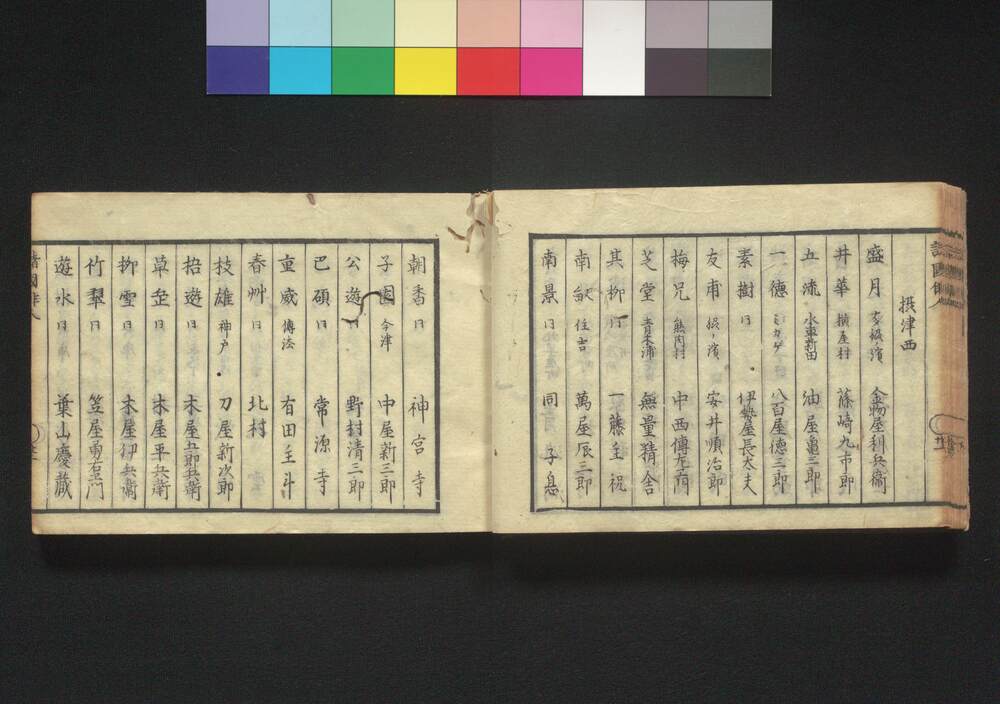 摂津西
盛月 摂濱 金場屋利兵衞
井華 横屋村 藤崎九市郎
五流 水車新田 油屋亀三郎
一德 ミカゲ 八百屋德三郎
素樹 〃 伊勢屋長太夫
友甫 摂濱 安井順治郎
梅兄 熊内村 中西傳左衞門
芝堂 青木浦 無量精舎
其柳 〃 一藤主祝
南 住吉 萬屋辰三郎
南景 〃 同 子息
朝香 〃 神宮寺
子園 今津 中屋新三郎
公遊 〃 野村清三郎
巴碩 〃 常源寺
重威 傳法 有田主斗
春艸 〃 北村
枝雄 神戸 刀屋新次郎
招遊 〃 木屋五郎兵衞
草 〃 木屋平兵衞
柳雪 〃 木屋伊兵衞
竹翠 〃 笠屋勇右衞門
遊水 〃 葉山慶蔵